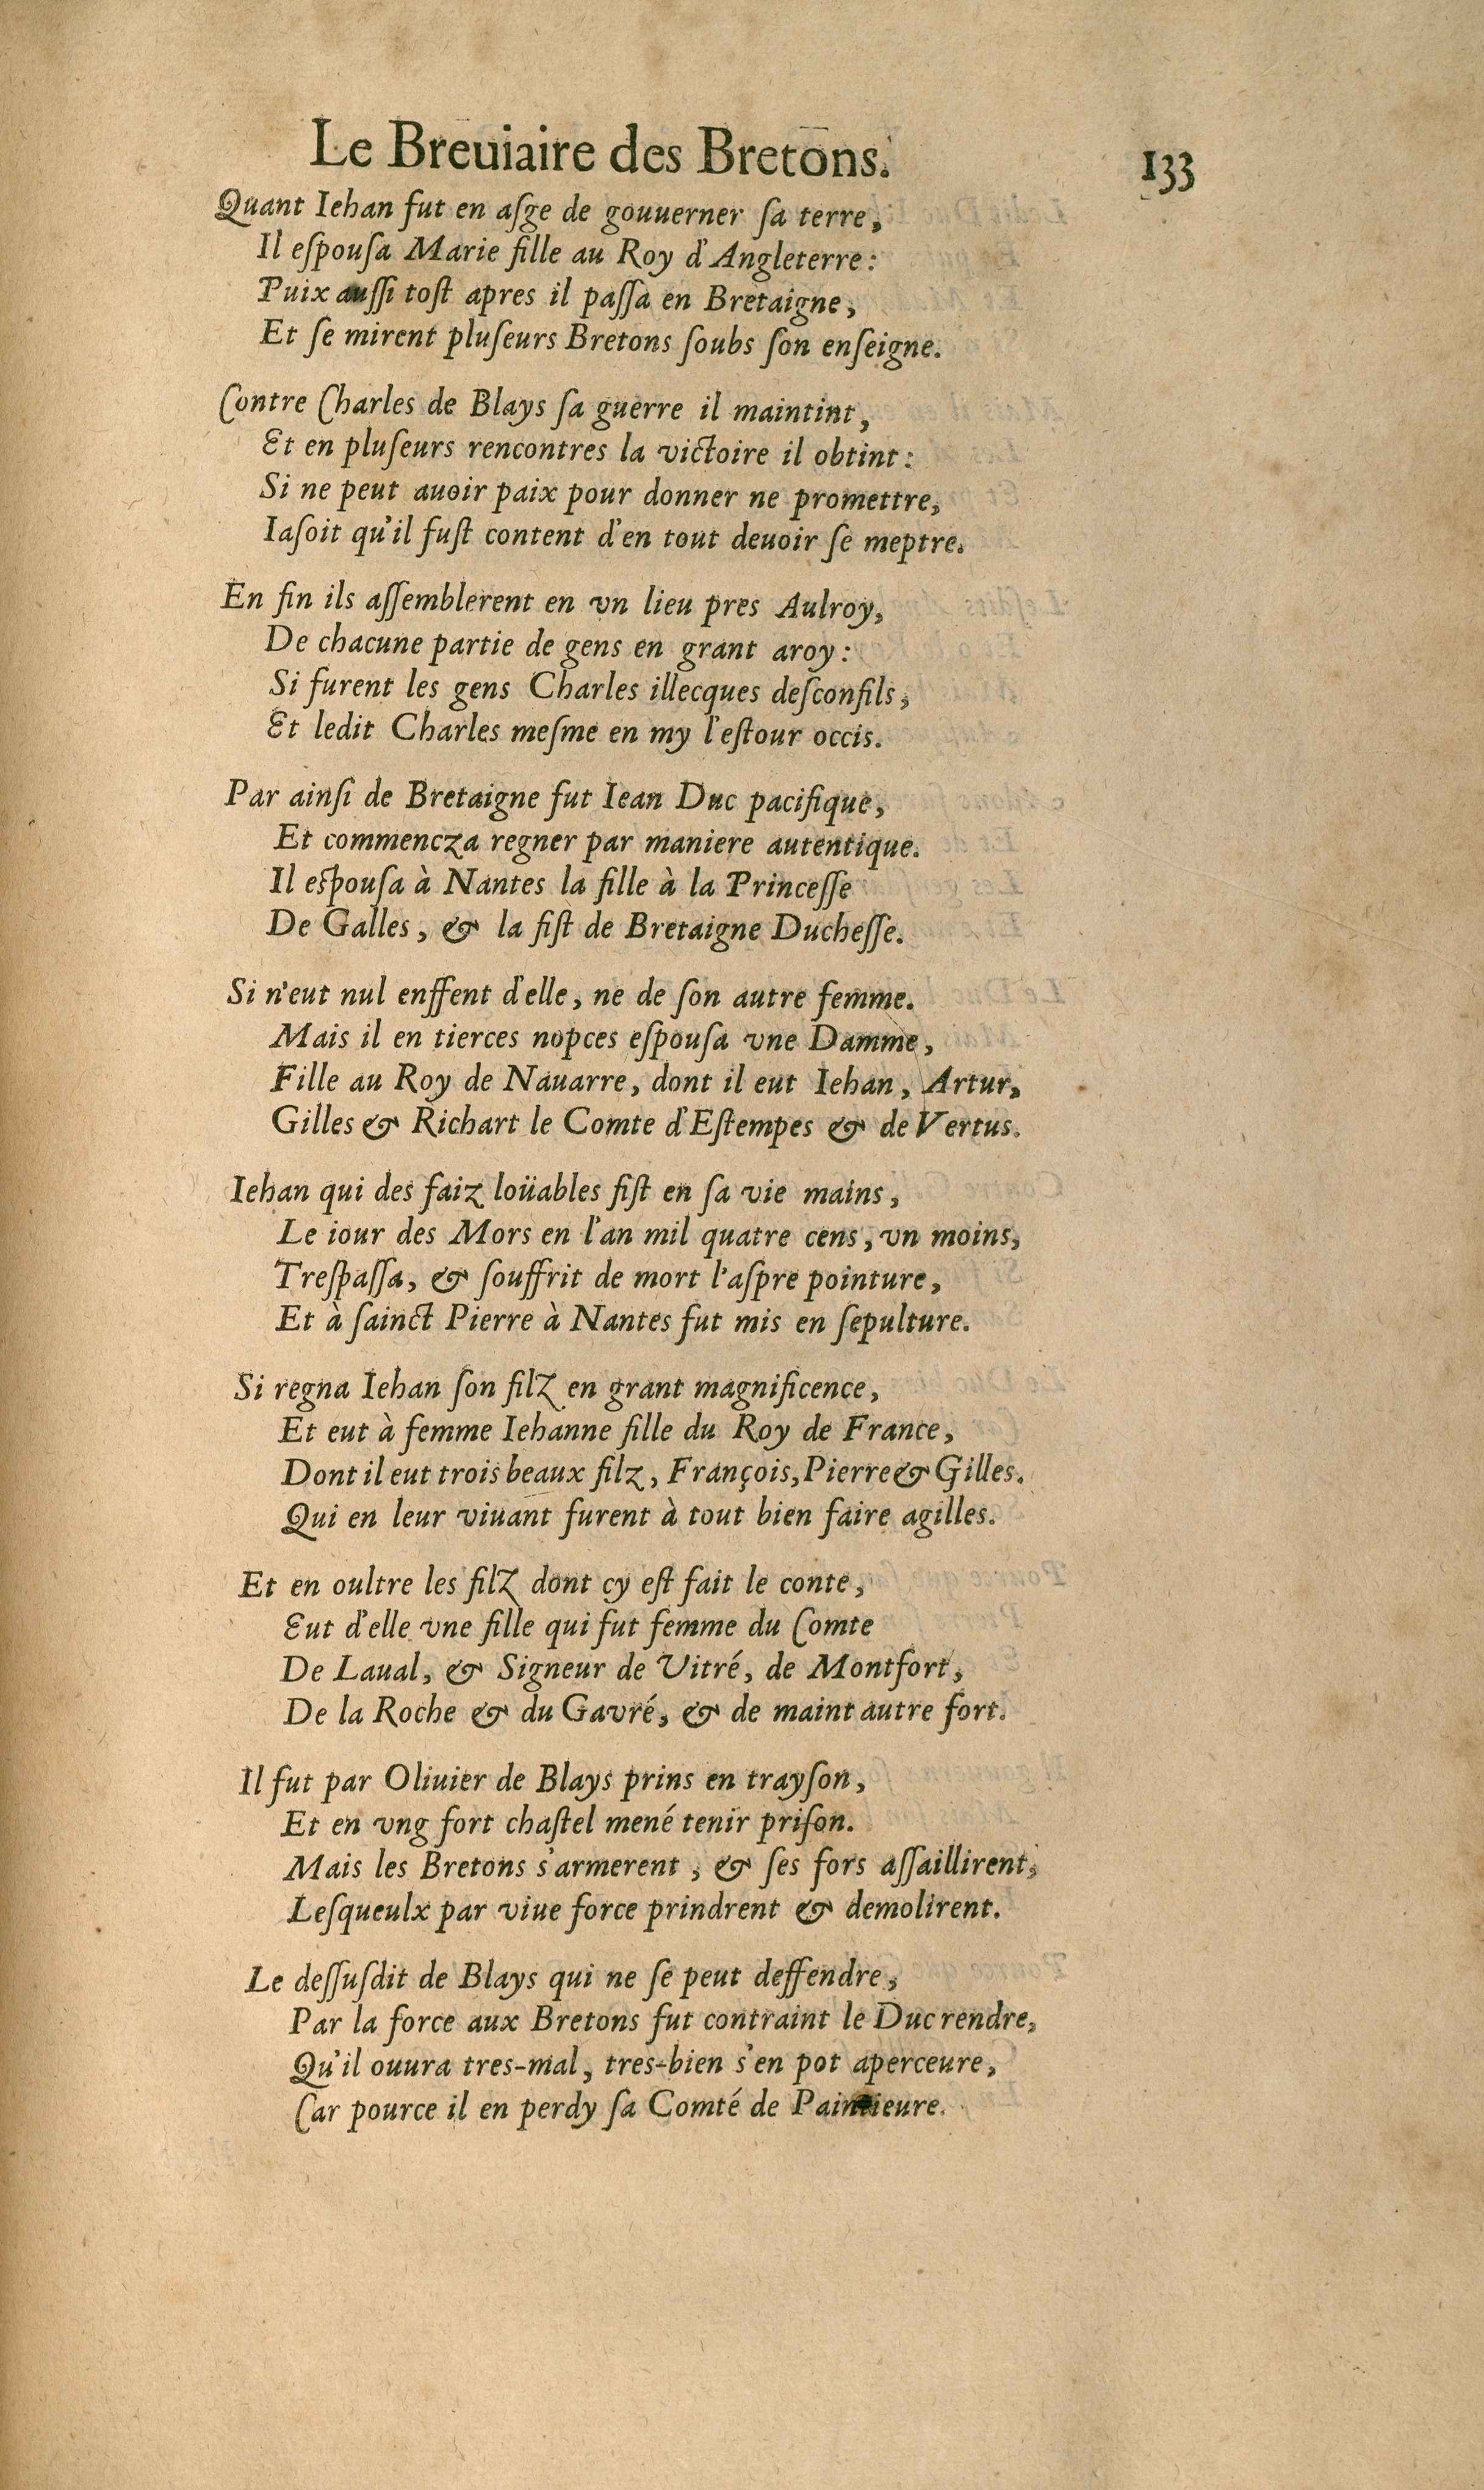 Le Breuiaire des Bretons. 133
Quant Iehan fut en aſge de gouuerner ſa terre,
Il eſpouſa Marie fille au Roy d'Angleterre:
Puix auſſi toſt apres il paſſa en Bretaigne,
Et ſe mirent pluſeurs Bretons ſoubs ſon enſeigne.
Contre Charles de Blays ſa guerre il maintint,
Et en pluſeurs rencontres la victoire il obtint:
Si ne peut auoir paix pour donner ne promettre,
Iaſoit qu'il fuſt content d'en tout deuoir ſe meptre.
En fin ils aſſemblerent en vn lieu pres Aulroy,
De chacune partie de gens en grant aroy:
Si furent les gens Charles illecques deſconfils,
Et ledit Charles meſme en my l'eſtour occis.
Par ainſi de Bretaigne fut Iean Duc pacifique,
Et commencza regner par maniere autentique.
Il eſpouſa à Nantes la fille à la Princeſſe
De Galles, & la fiſt de Bretaigne Ducheſſe.
Si n'eut nul enffent d'elle, ne de ſon autre femme.
Mais il en tierces nopces eſpouſa vne Damme,
Fille au Roy de Nauarre, dont il eut Iehan, Artur,
Gilles & Richart le Comte d'Eſtempes & de Vertus.
Iehan qui des faiz loüables fiſt en ſa vie mains,
Le iour des Mors en l'an mil quatre cens, vn moins,
Treſpaſſa, & ſouffrit de mort l'aſpre pointure,
Et à ſainct Pierre à Nantes fut mis en ſepulture.
Si regna Iehan ſon filz en grant magnificence,
Et eut à femme Iehanne fille du Roy de France,
Dont il eut trois beaux filz, François, Pierre & Gilles.
Qui en leur viuant furent à tout bien faire agilles.
Et en oultre les filz dont cy eſt fait le conte,
Eut d'elle vne fille qui fut femme du Comte
De Laual, & Signeur de Vitré, de Montfort,
De la Roche & du Gavré, & de maint autre fort.
Il fut par Oliuier de Blays prins en trayſon,
Et en vng fort chaſtel mené tenir priſon.
Mais les Bretons s'armerent, & ſes fors aſſaillirent,
Leſqueulx par viue force prindrent & demolirent.
Le deſſuſdit de Blays qui ne ſe peut deffendre,
Par la force aux Bretons fut contraint le Duc rendre,
Qu'il ouura tres-mal, tres-bien s'en pot aperceure,
Car pource il en perdy ſa Comté de Paintieure.